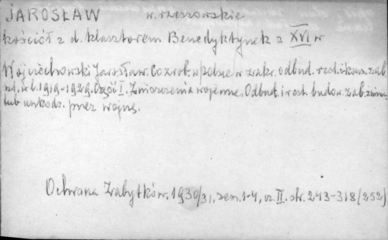 JAROSŁAW w. rzeszowskie
kościół z d. klasztorem Benedyktynek z XVI w
Wojciechowski Jarosław. Co zrob. w Polsce w zakr. odbud. rest. i kons. zab.
w l. 1919-1929. Część I. Zniszczenia wojenne. Odbud. i rest. budow. zab. zniszcz.
lub uszkodz. przez wojnę.
Ochrona Zabytków. 1930/31, zesz. 1-4, cz. II. str. 243-318 (252)